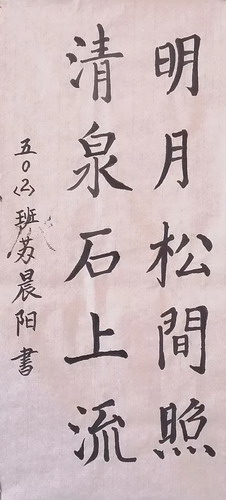 明月松間照
清泉石上流
五〇〈2〉班苏晨阳書